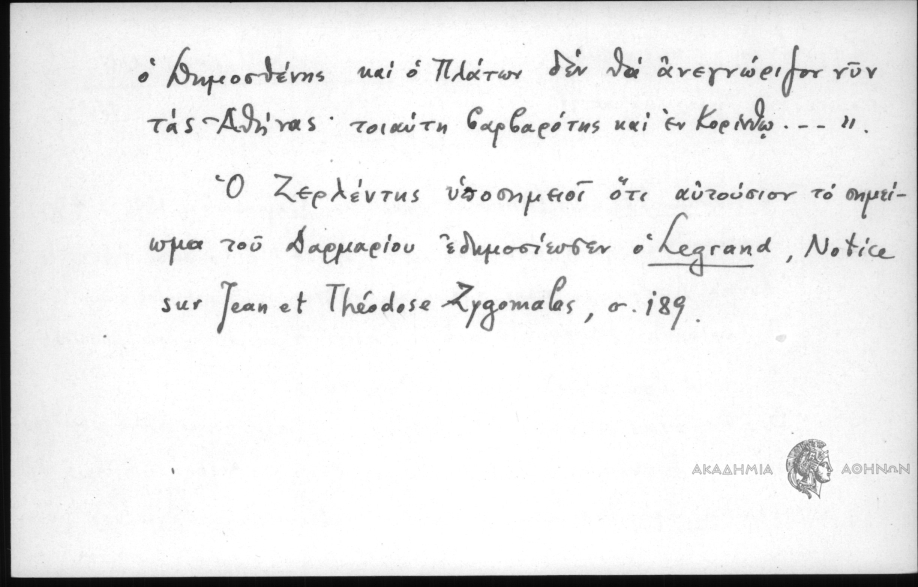 ὁ Δημοσθένης καὶ ὁ Πλάτων δὲν θὰ ἀνεγνώριζον νῦν
τὰς Ἀθήνας· τοιαύτη βαρβαρότης καὶ ἐν Κορίνθῳ...".
Ὁ Ζερλέντης ὑποσημειοῖ ὅτι αὐτούσιον τὸ σημεί-
ωμα τοῦ Δαρμαρίου ἐδημοσίευσεν ὁ Legrand, Notice
sur Jean et Théodose Zygomalas, σ. 189.
ΑΚΑΔΗΜΙΑ ΑΘΗΝΩΝ